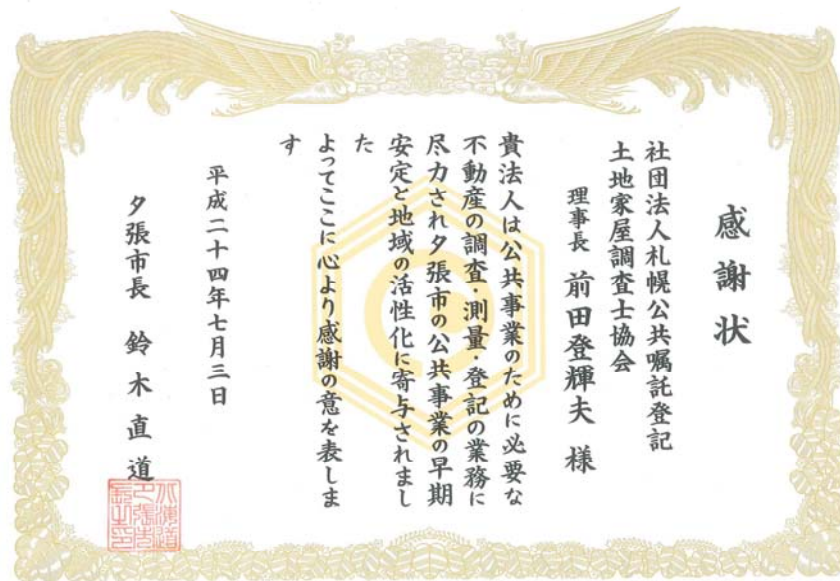 感謝状
社団法人札幌公共嘱託登記
土地家屋調査士協会
理事長 前田登輝夫 様
貴法人は公共事業のために必要な
不動産の調査・測量・登記の業務に
尽力され夕張市の公共事業の早期
安定と地域の活性化に寄与されまし
た
よってここに心より感謝の意を表しま
す
平成二十四年七月三日
夕張市長 鈴木直道
北海道
夕張市
長之印